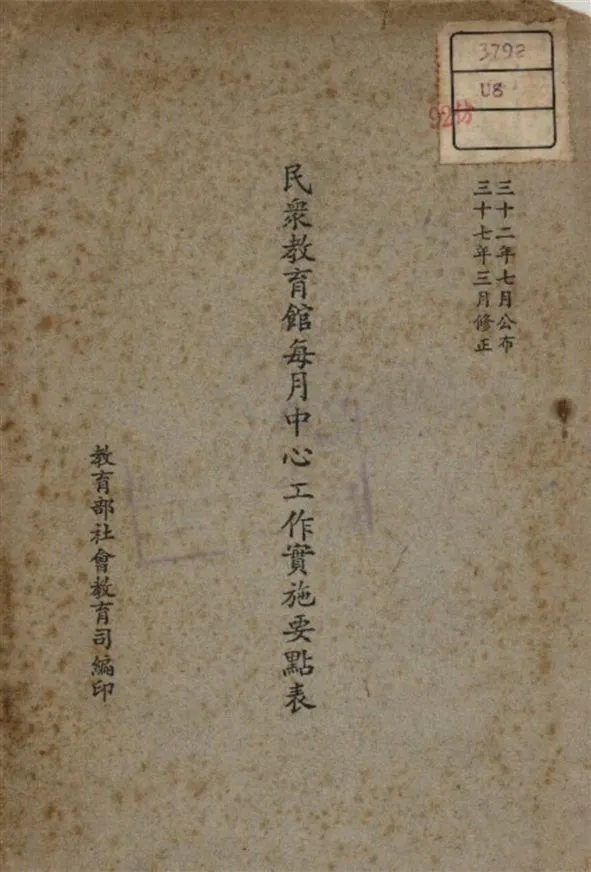 三十二年七月公布
三十七年三月修正
民衆教育館每月中心工作實施要點表
教育部社會教育司編印
3792
U8